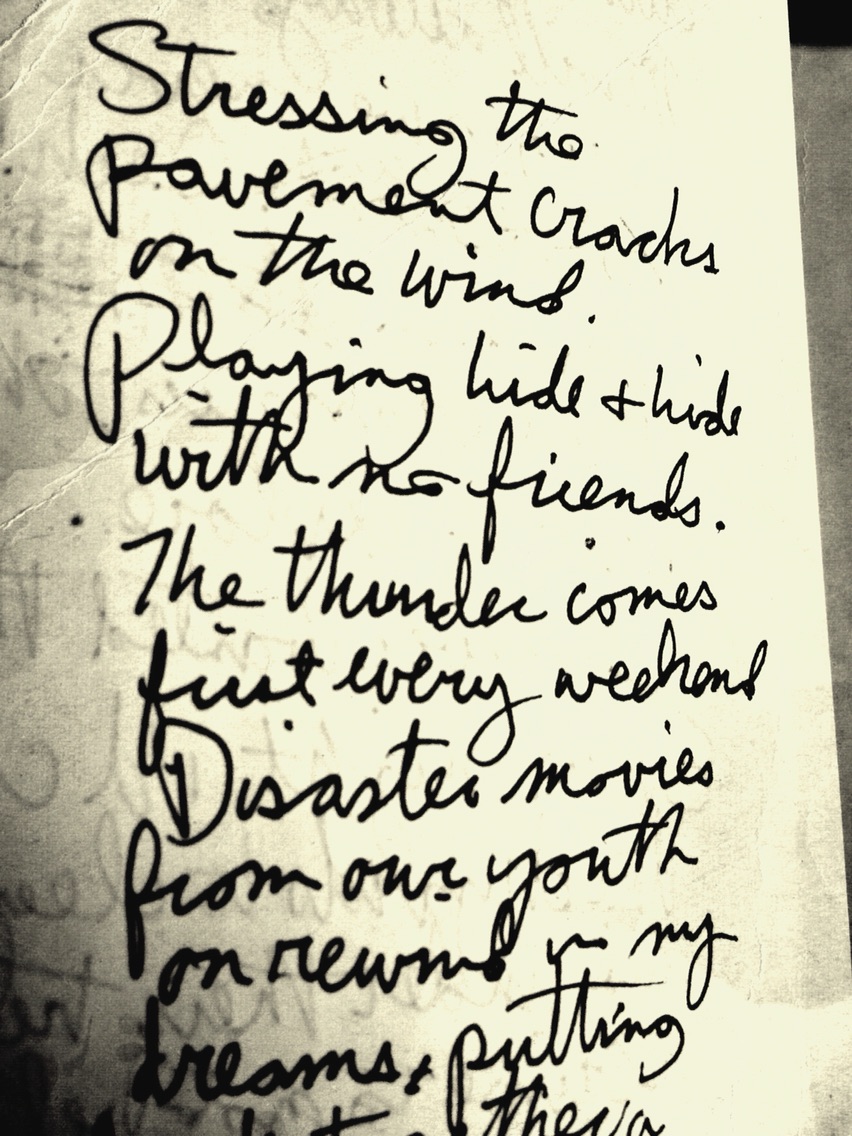 Stressing the
pavement cracks
on the wind.
Playing hide & hide
with no friends.
The thunder comes
first every weekend
Disaster movies
from our youth
on rewind in my
dreams, putting